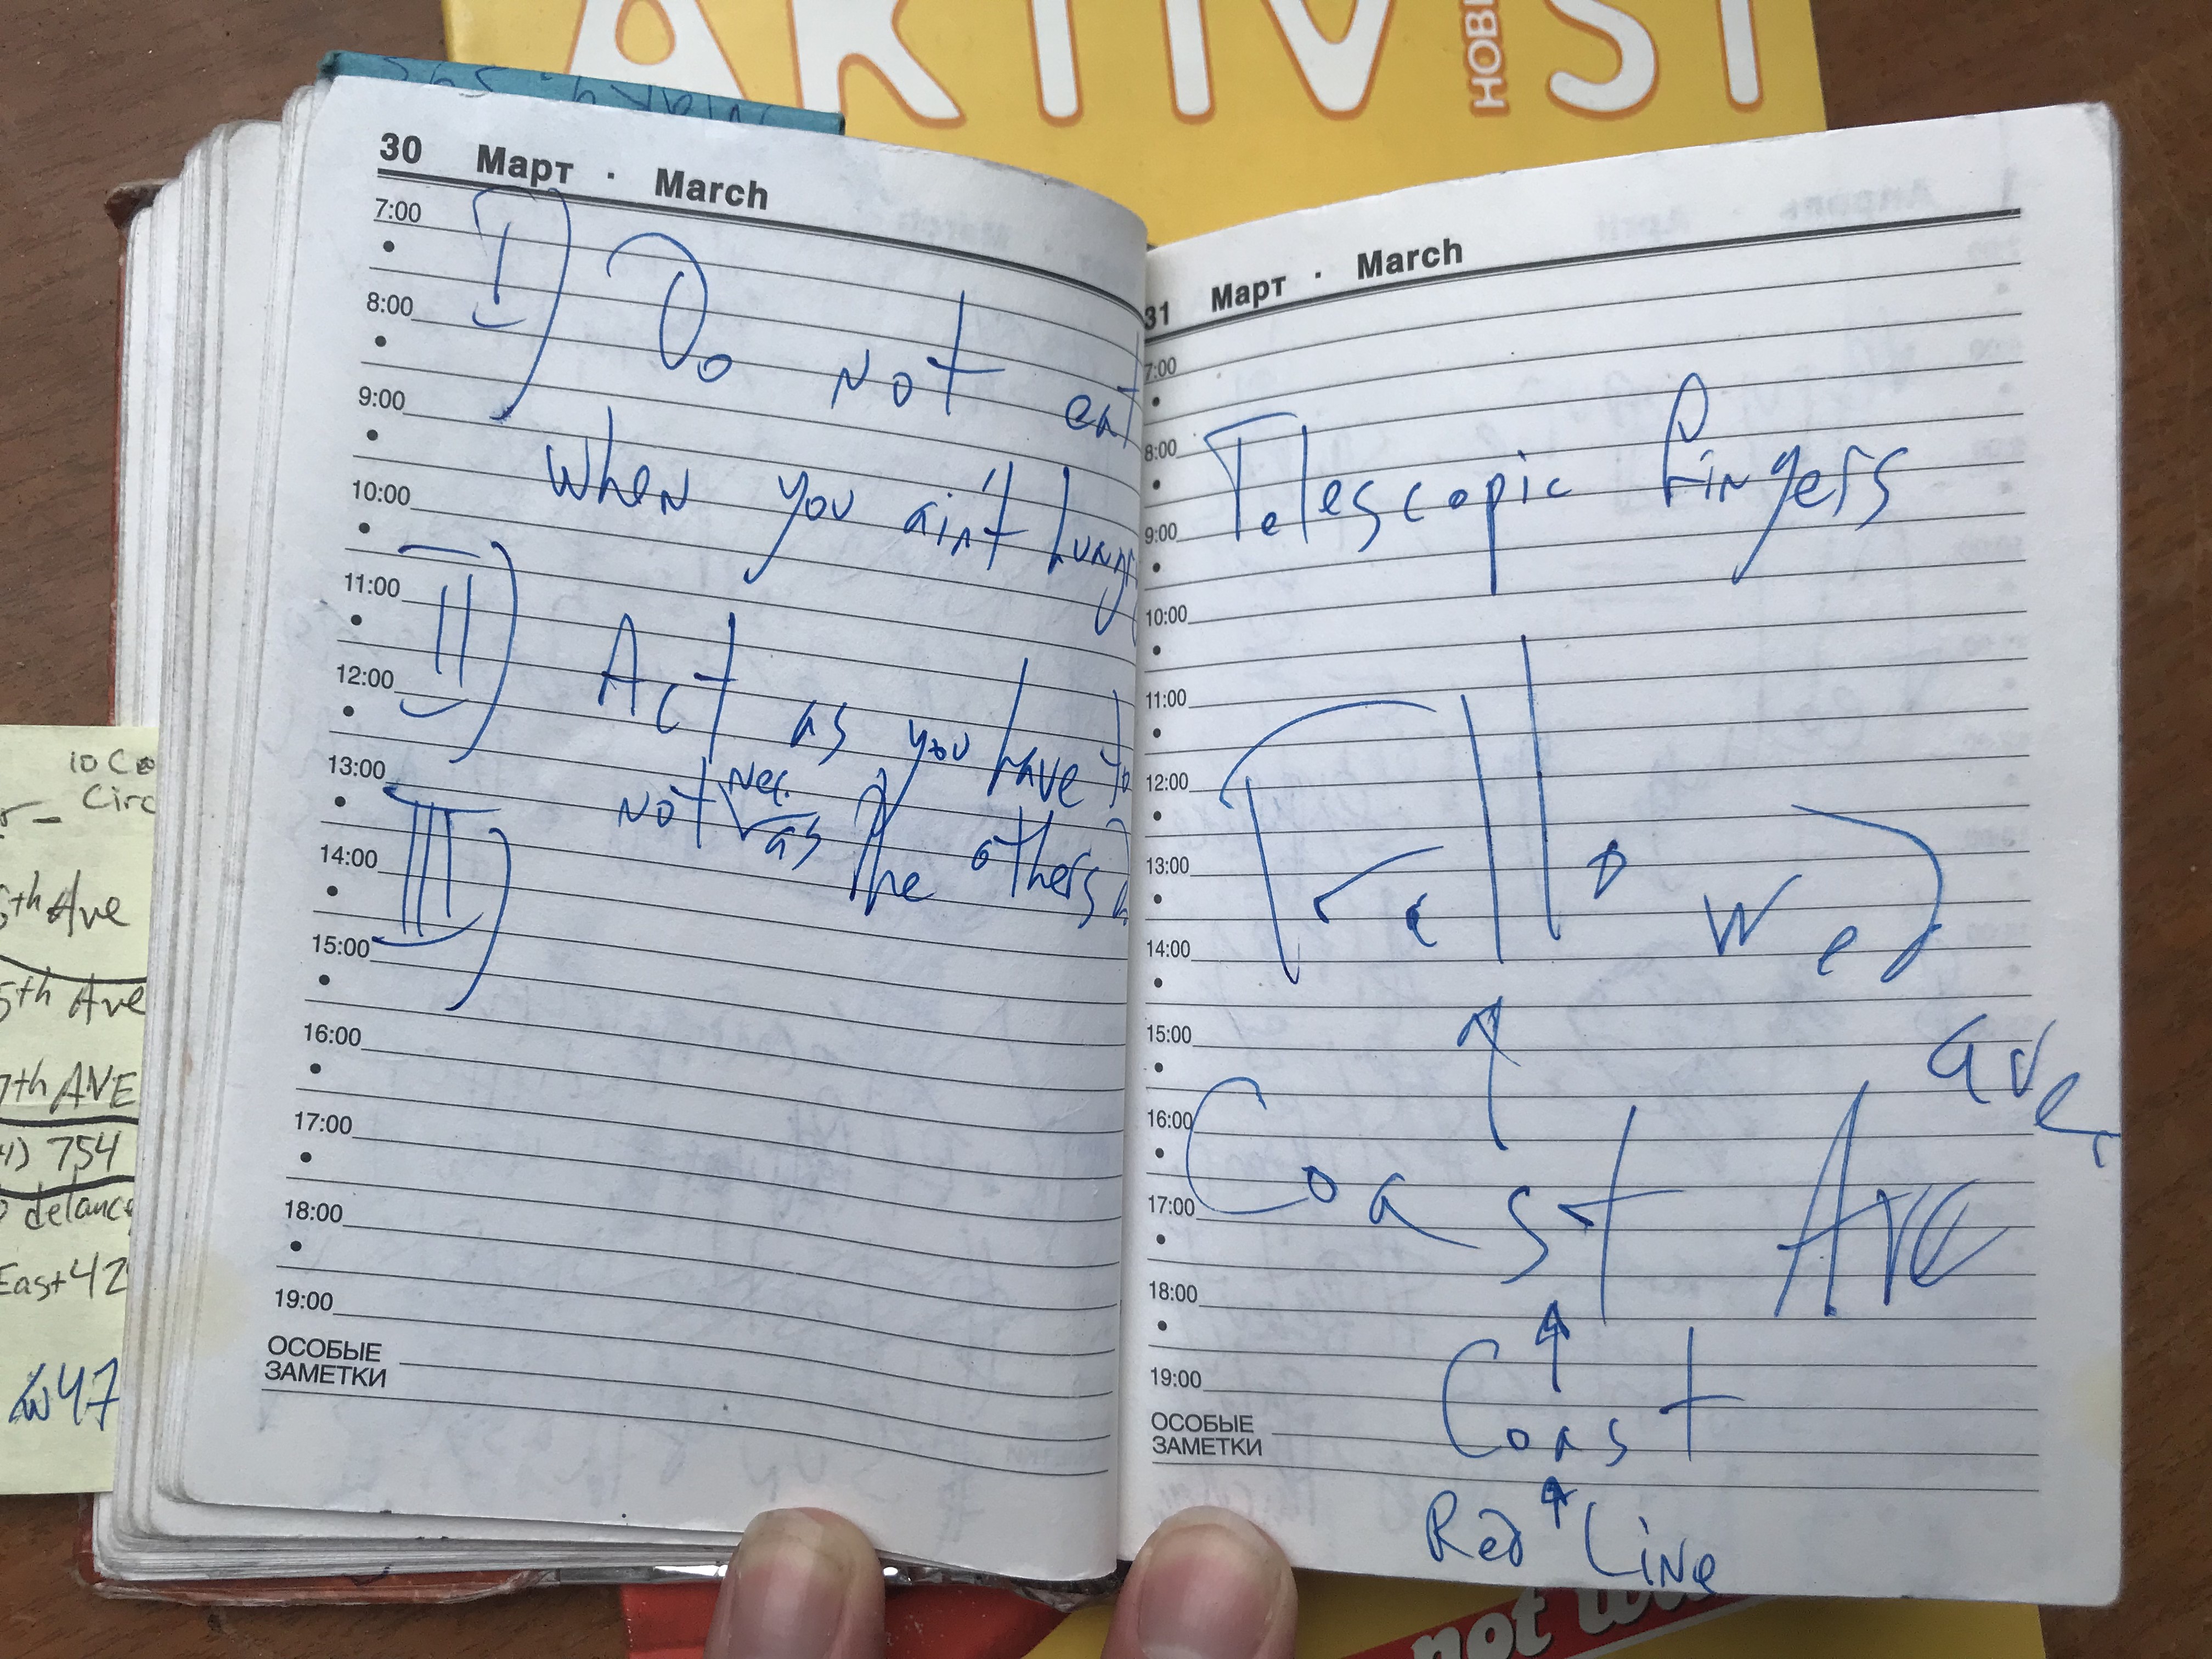 30 Март · March
7:00
8:00
9:00
10:00
11:00
12:00
13:00
14:00
15:00
16:00
17:00
18:00
19:00
ОСОБЫЕ
ЗАМЕТКИ
I) Do not eat
When you ain't hungry
II) Act as you have to
not nec. as if the others
III)
31 Март · March
7:00
8:00
9:00
10:00
11:00
12:00
13:00
14:00
15:00
16:00
17:00
18:00
19:00
ОСОБЫЕ
ЗАМЕТКИ
Telescopic Fingers
We
ave
Coast
Coast
Red Line
AKTIVIST
not
10
Circ
5th Ave
5th Ave
7th AVE
754
delancey
East 42
W47